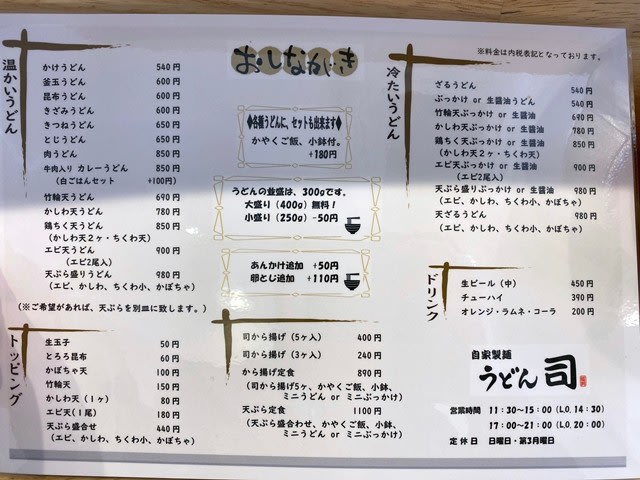 おしながき
※料金は内税表記となっております。
温かいうどん
かけうどん 540円
釜玉うどん 600円
昆布うどん 600円
きざみうどん 600円
きつねうどん 650円
とじうどん 650円
肉うどん 850円
牛肉入り カレーうどん 850円
(白ごはんセット +100円)
竹輪天うどん 690円
かしわ天うどん 780円
鶏ちく天うどん 850円
(かしわ天2ヶ・ちくわ天)
エビ天うどん 900円
(エビ2尾入)
天ぷら盛りうどん 980円
(エビ、かしわ、ちくわ小、かぼちゃ)
(※ご希望があれば、天ぷらを別皿に致します。)
◆各種うどんに、セットも出来ます◆
かやくご飯、小鉢付。
+180円
うどんの並盛は、300gです。
大盛り(400g)無料!
小盛り(250g)-50円
あんかけ追加 +50円
卵とじ追加 +110円
冷たいうどん
ざるうどん 540円
ぶっかけ or 生醤油うどん 540円
竹輪天ぶっかけ or 生醤油 690円
かしわ天ぶっかけ or 生醤油 780円
鶏ちく天ぶっかけ or 生醤油 850円
(かしわ天2ヶ・ちくわ天)
エビ天ぶっかけ or 生醤油 900円
(エビ2尾入)
天ぷら盛りぶっかけ or 生醤油 980円
(エビ、かしわ、ちくわ小、かぼちゃ)
天ざるうどん 980円
(エビ、かしわ、ちくわ小、かぼちゃ)
ドリンク
生ビール(中) 450円
チューハイ 390円
オレンジ・ラムネ・コーラ 200円
トッピング
生玉子 50円
とろろ昆布 60円
かぼちゃ天 100円
竹輪天 150円
かしわ天(1ヶ) 80円
エビ天(1尾) 180円
天ぷら盛合せ 440円
(エビ、かしわ、ちくわ小、かぼちゃ)
司から揚げ(5ヶ入) 400円
司から揚げ(3ヶ入) 240円
から揚げ定食 890円
(司から揚げ5ヶ、かやくご飯、小鉢、
ミニうどん or ミニぶっかけ)
天ぷら定食 1100円
(天ぷら盛合わせ、かやくご飯、小鉢、
ミニうどん or ミニぶっかけ)
自家製麺
うどん 司
営業時間 11:30~15:00(L.O.14:30)
17:00~21:00(L.O.20:00)
定休日 日曜日・第3月曜日